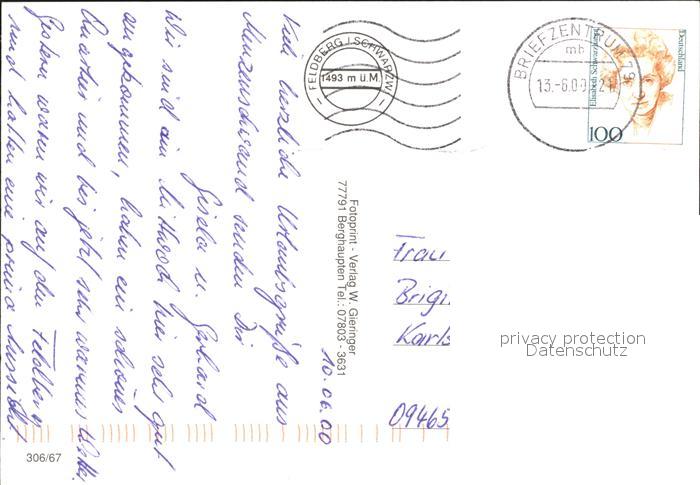 10.06.00
Viele herzliche Urlaubsgrüße aus
Menzenschwand senden Dir
Gisela u. Gerhard
Wir sind am Mittwoch hier sehr gut
angekommen, haben ein schönes
Quartier und bis jetzt sehr warmes Wetter.
Gestern waren wir auf dem Feldberg
und hatten eine prima Aussicht
306/67
FELDBERG / SCHWARZW.
1493 m ü.M.
BRIEFZENTRUM 79
mb
13.-6.00 21
Deutschland
Elisabeth Schwarzhaupt
100
Fotoprint - Verlag W. Gieringer
77791 Berghaupten Tel.: 07803 - 3631
Frau
Brigi
Karls
09465
privacy protection
Datenschutz